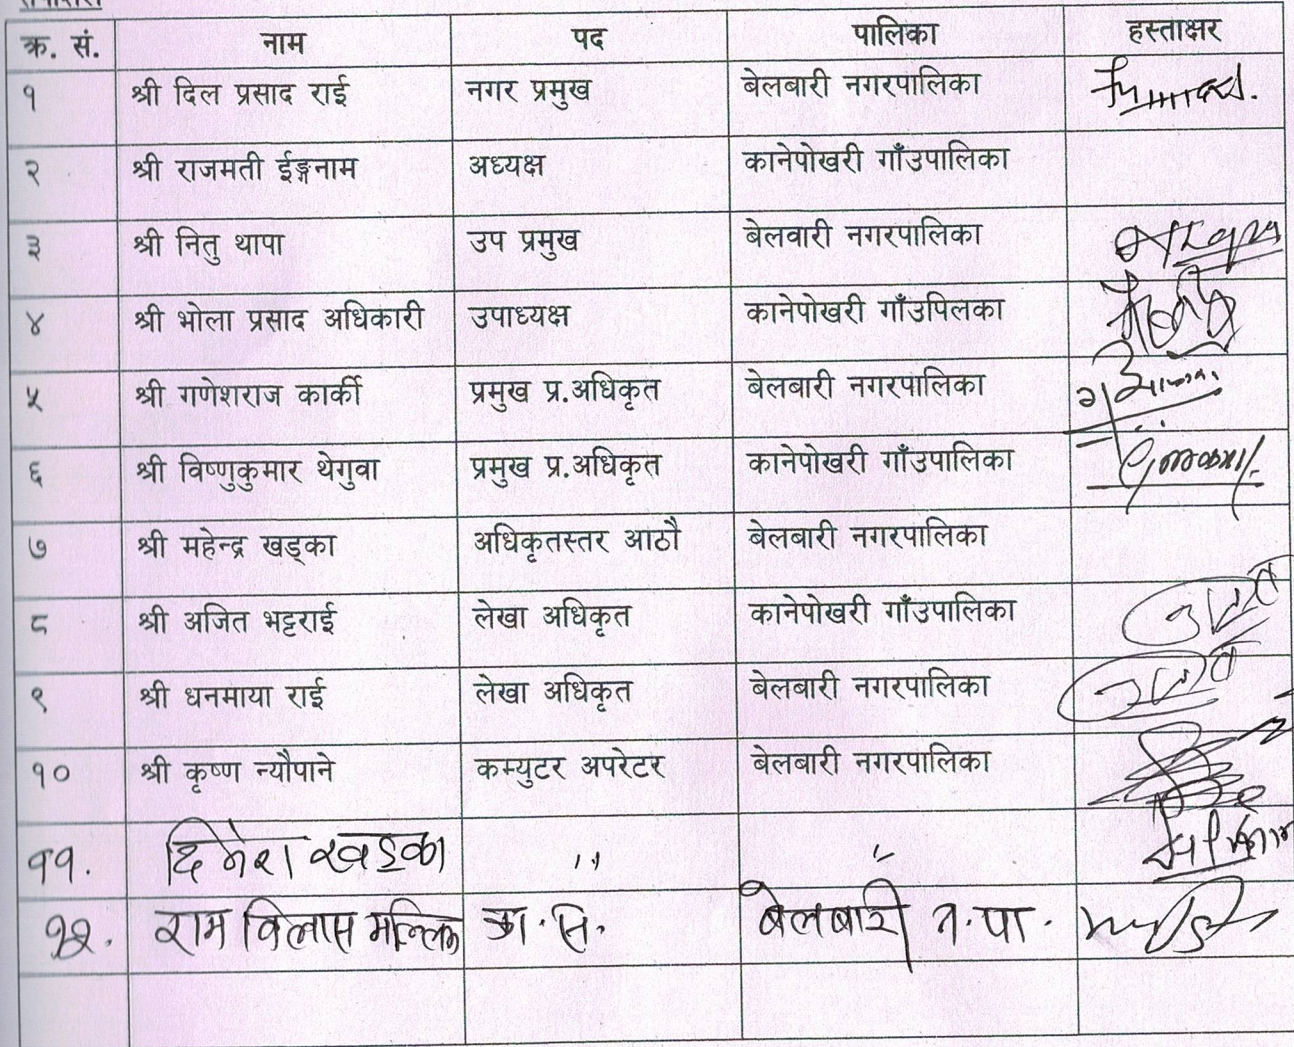 क्र. सं. नाम पद पालिका हस्ताक्षर
१ श्री दिल प्रसाद राई नगर प्रमुख बेलबारी नगरपालिका
२ श्री राजमती ईङ्गनाम अध्यक्ष कानेपोखरी गाँउपालिका
३ श्री नितु थापा उप प्रमुख बेलवारी नगरपालिका
४ श्री भोला प्रसाद अधिकारी उपाध्यक्ष कानेपोखरी गाँउपिलका
५ श्री गणेशराज कार्की प्रमुख प्र.अधिकृत बेलबारी नगरपालिका
६ श्री विष्णुकुमार थेगुवा प्रमुख प्र.अधिकृत कानेपोखरी गाँउपालिका
७ श्री महेन्द्र खड्का अधिकृतस्तर आठौ बेलबारी नगरपालिका
८ श्री अजित भट्टराई लेखा अधिकृत कानेपोखरी गाँउपालिका
९ श्री धनमाया राई लेखा अधिकृत बेलबारी नगरपालिका
१० श्री कृष्ण न्यौपाने कम्युटर अपरेटर बेलबारी नगरपालिका
११. खड्का " "
१२. राम विलास मल्लिक का.स. बेलबारी न.पा.